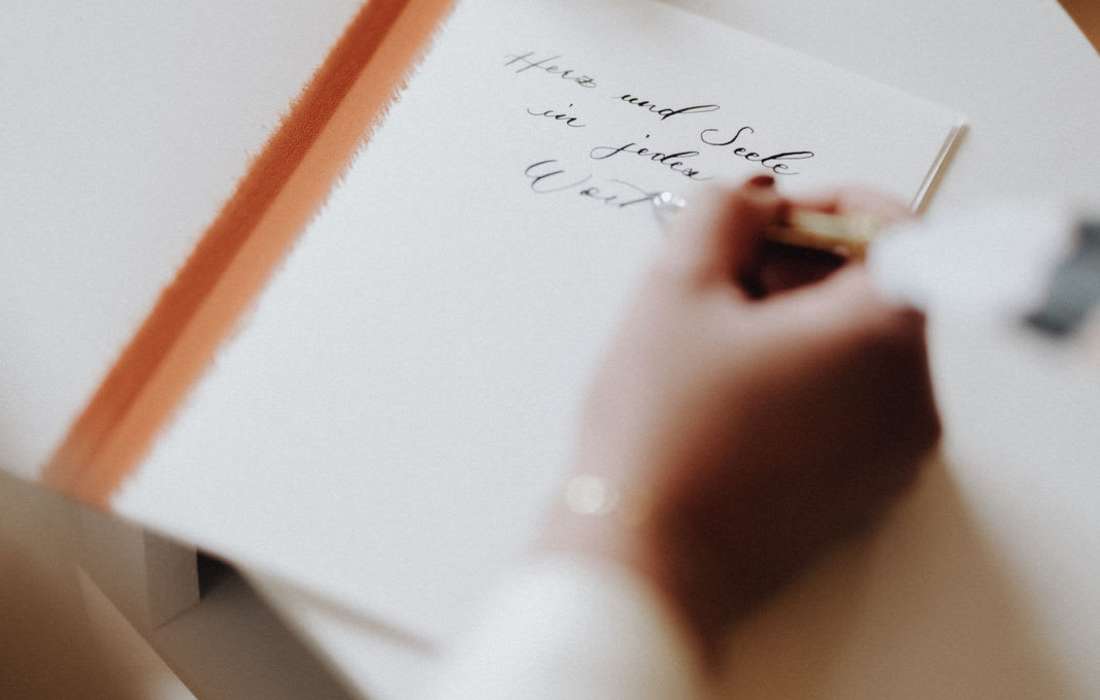 Herz und Seele
in jedem
Wort